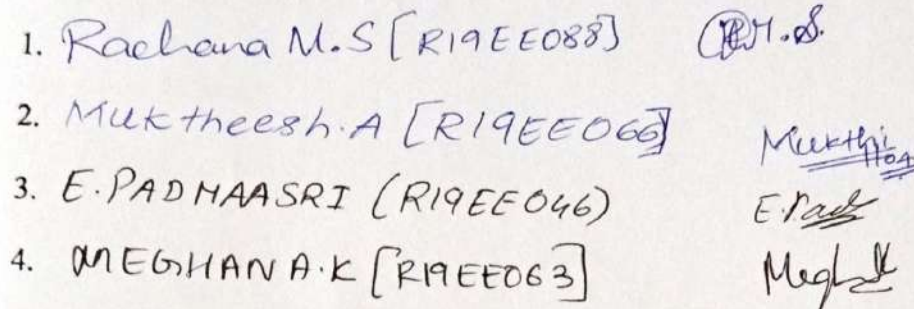 1. Rachana M.S [R19EE088]
2. Muktheesh.A [R19EE066]
3. E.PADMAASRI (R19EE046)
4. MEGHANA.K [R19EE063]